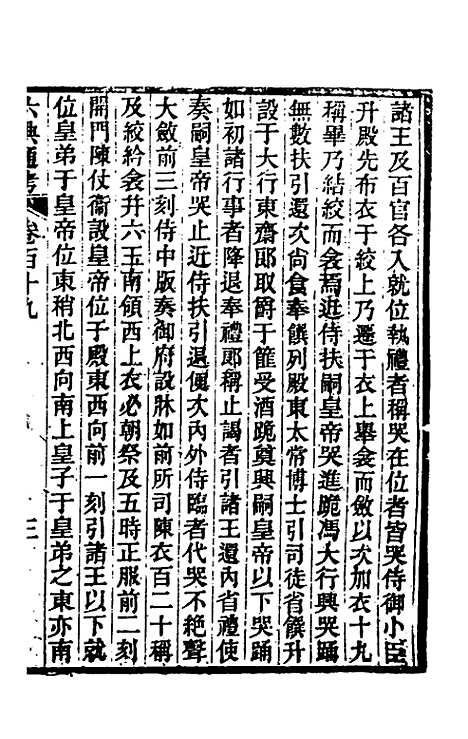 諸王及百官各入就位執禮者稱哭在位者皆哭侍御小臣
升殿先布衣于絞上乃遷于衣上舉衾而斂以次加衣十九
稱畢乃結絞而衾焉近侍扶嗣皇帝哭進跪馮大行興哭踊
無數扶引還次尚食奉饌列殿東太常博士引司徒省饌升
設于大行東齋郎取爵于篚受酒跪奠興嗣皇帝以下哭踊
如初諸行事者降退奉禮郎稱止謁者引諸王還內省禮使
奏嗣皇帝哭止近侍扶引退便次內外侍臨者代哭不絶聲
大斂前三刻侍中版奏御府設牀如前所司陳衣百二十稱
及絞紟衾并六玉南領西上衣必朝祭及五時正服前二刻
開門陳仗衞設皇帝位于殿東西向前一刻引諸王以下就
位皇弟于皇帝位東稍北西向南上皇子于皇弟之東亦南
六典通考 卷百十九 三